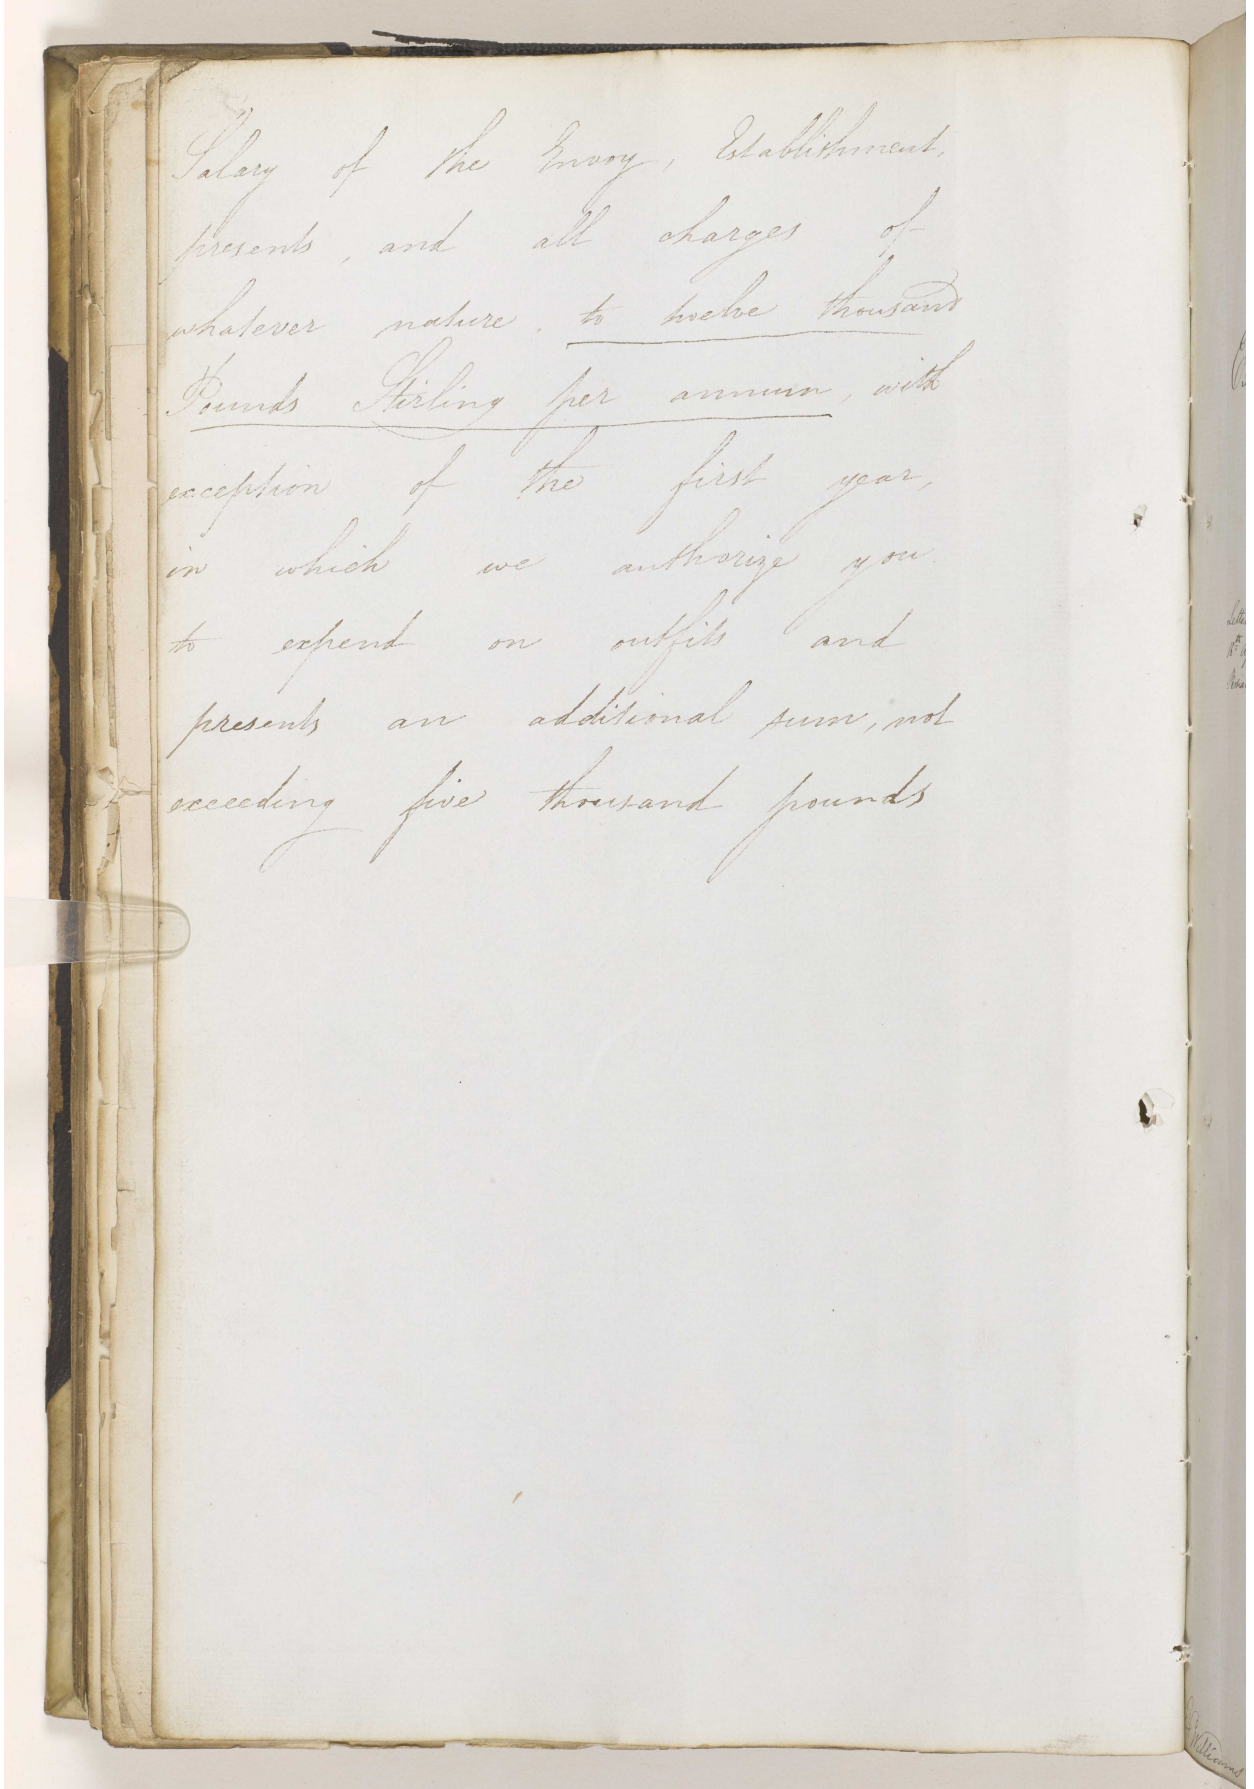 Salary of the Envoy, Establishment,
presents, and all charges of
whatever nature, to twelve thousand
Pounds Stirling per annum, with
exception of the first year,
in which we authorize you
to expend on outfits and
presents an additional sum, not
exceeding five thousand pounds
Williams